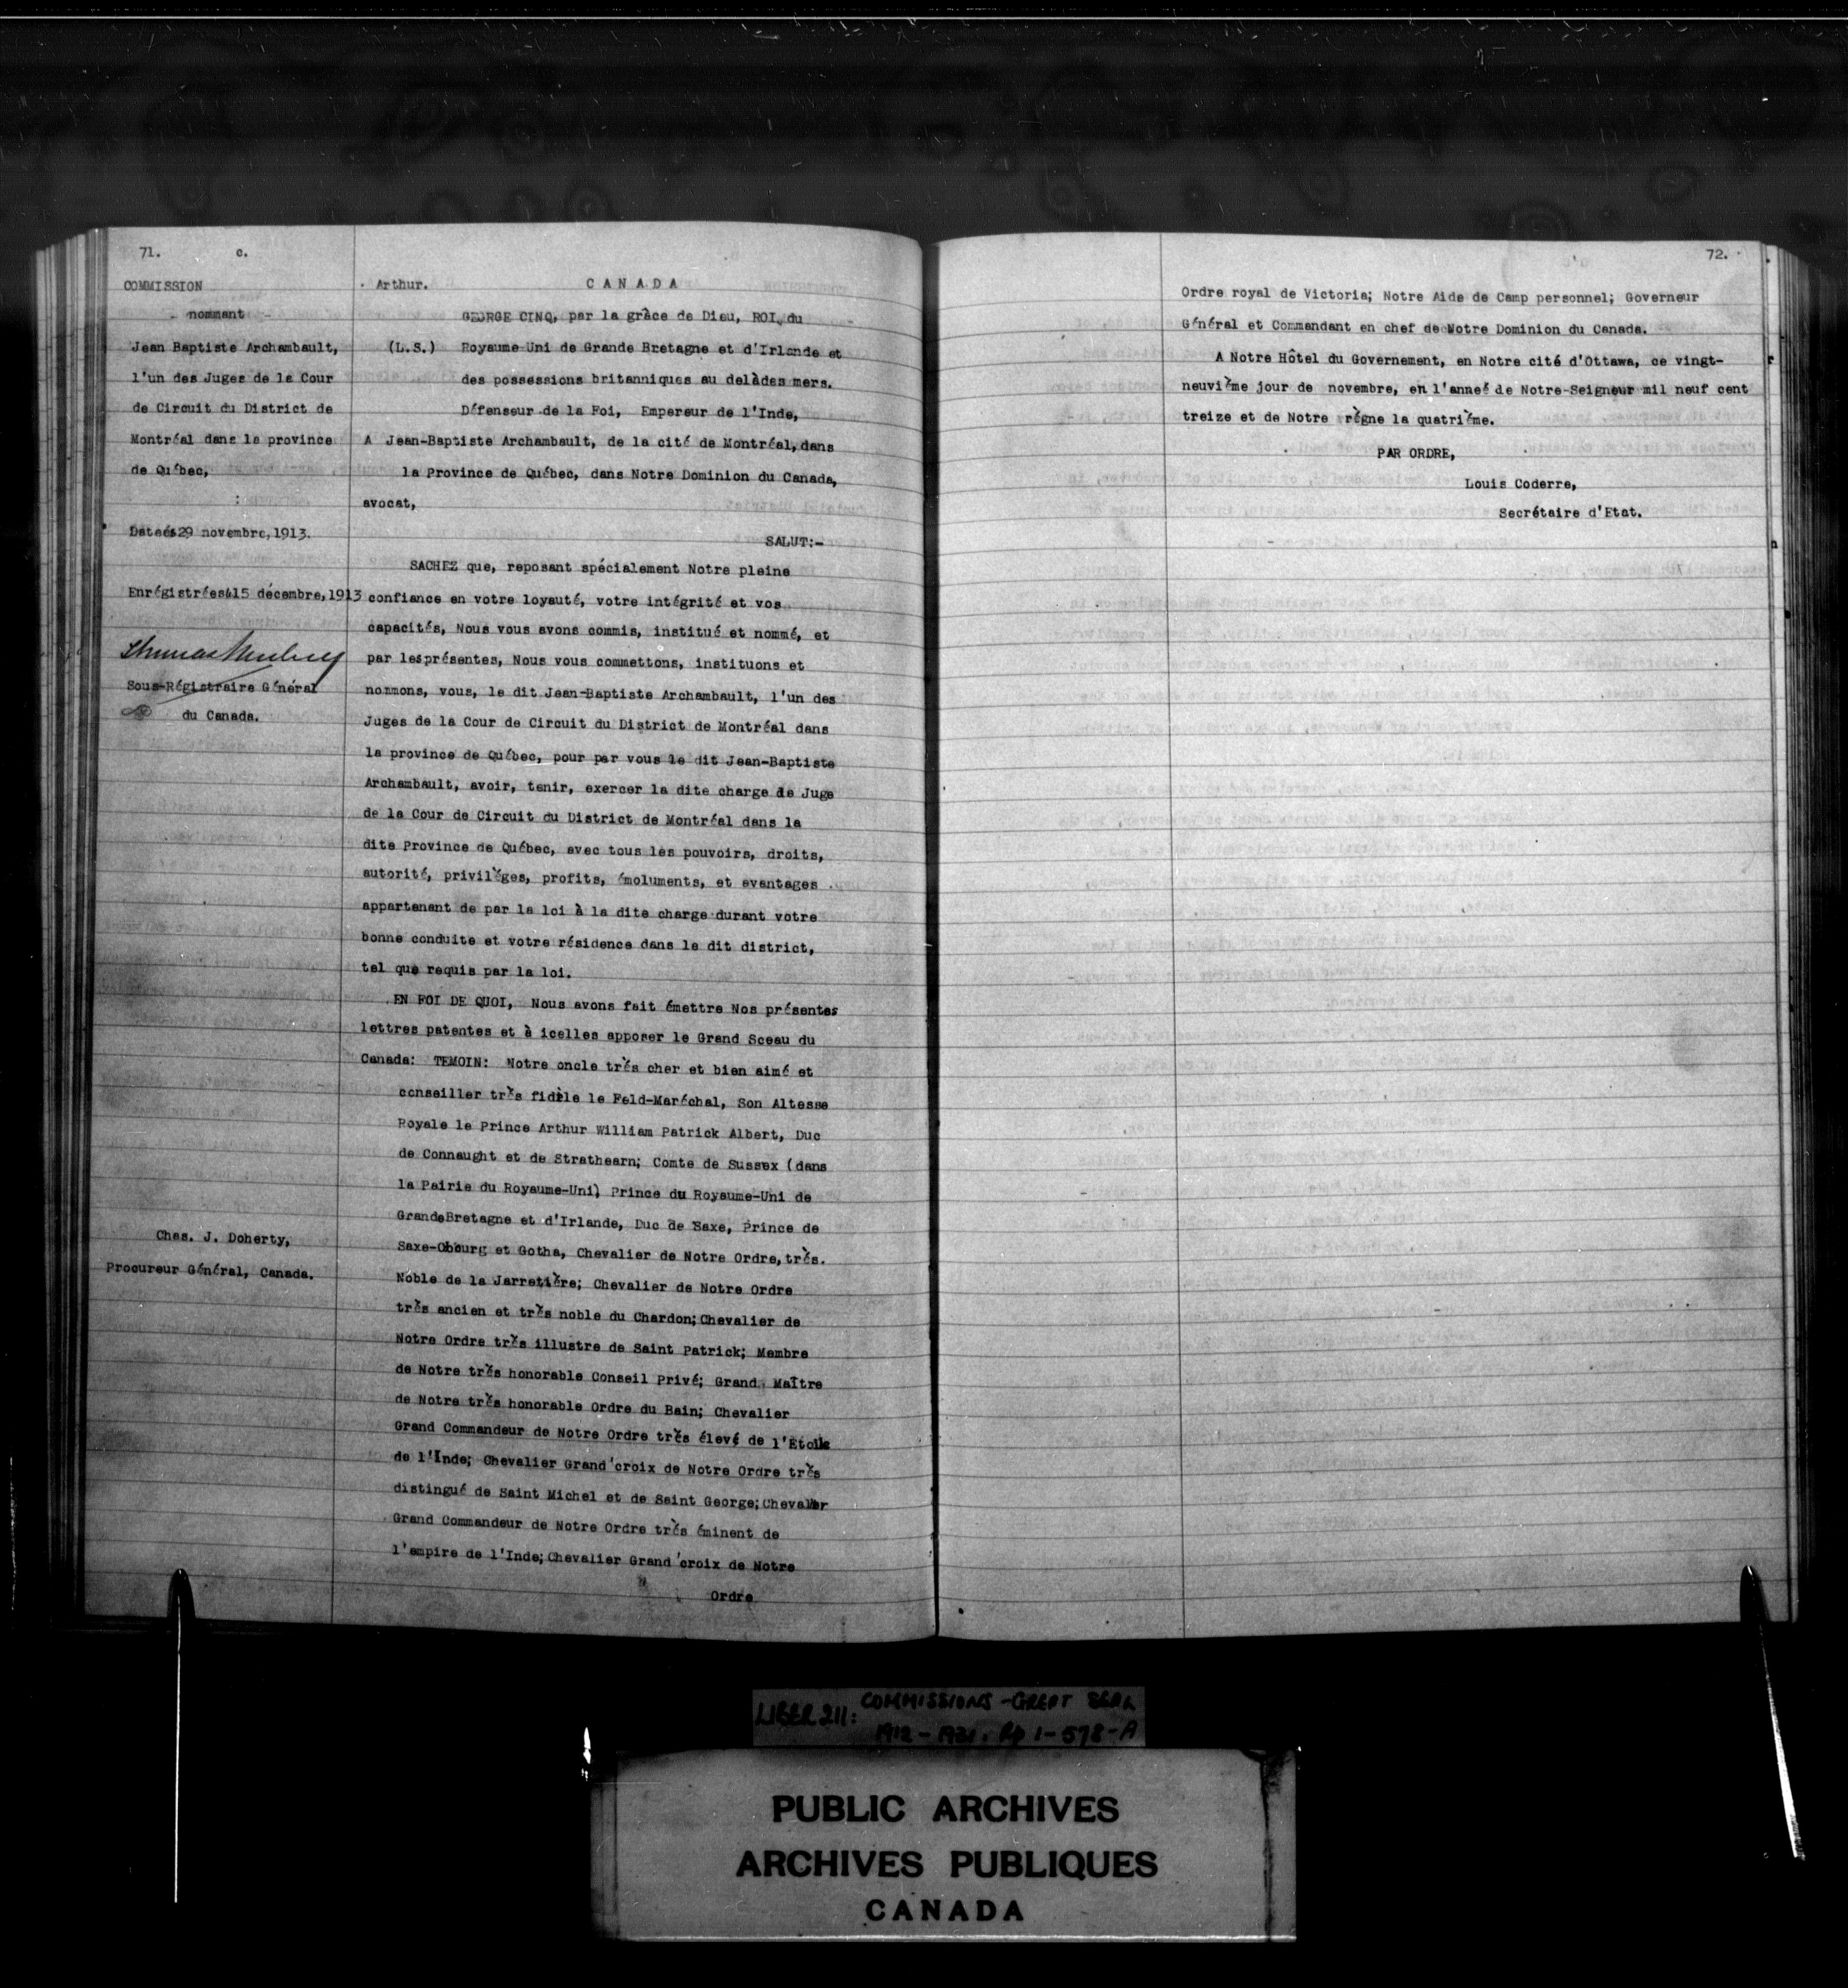 71. c.
COMMISSION
nommant
Jean Baptiste Archambault,
l'un des Juges de la Cour
de Circuit du District de
Montréal dans la province
de Québec,
:
Datées29 novembre,1913.
Enrégistrées415 décembre,1913
Sous-Régistraire Général
du Canada.
Chas. J. Doherty,
Procureur Général, Canada.
Arthur. CANADA
GEORGE CINQ, par la grâce de Dieu, ROI du
(L.S.) Royaume-Uni de Grande Bretagne et d'Irlande et
des possessions britanniques au delàdes mers.
Défenseur de la Foi, Empereur de l'Inde,
A Jean-Baptiste Archambault, de la cité de Montréal, dans
la Province de Québec, dans Notre Dominion du Canada,
avocat,
SALUT:-
SACHEZ que, reposant spécialement Notre pleine
confiance en votre loyauté, votre intégrité et vos
capacités, Nous vous avons commis, institué et nommé, et
par lesprésentes, Nous vous commettons, instituons et
nommons, vous, le dit Jean-Baptiste Archambault, l'un des
Juges de la Cour de Circuit du District de Montréal dans
la province de Québec, pour par vous le dit Jean-Baptiste
Archambault, avoir, tenir, exercer la dite charge de Juge
de la Cour de Circuit du District de Montréal dans la
dite Province de Québec, avec tous les pouvoirs, droits,
autorité, privilèges, profits, émoluments, et avantages
appartenant de par la loi à la dite charge durant votre
bonne conduite et votre résidence dans le dit district,
tel que requis par la loi.
EN FOI DE QUOI, Nous avons fait émettre Nos présentes
lettres patentes et à icelles apposer le Grand Sceau du
Canada: TEMOIN: Notre oncle très cher et bien aimé et
conseiller très fidèle le Feld-Maréchal, Son Altesse
Royale le Prince Arthur William Patrick Albert, Duc
de Connaught et de Strathearn; Comte de Sussex (dans
la Pairie du Royaume-Uni) Prince du Royaume-Uni de
GrandeBretagne et d'Irlande, Duc de Saxe, Prince de
Saxe-Cobourg et Gotha, Chevalier de Notre Ordre, très.
Noble de la Jarretière; Chevalier de Notre Ordre
très ancien et très noble du Chardon; Chevalier de
Notre Ordre très illustre de Saint Patrick; Membre
de Notre très honorable Conseil Privé; Grand Maître
de Notre très honorable Ordre du Bain; Chevalier
Grand Commandeur de Notre Ordre très élevé de l'Etoile
de l'Inde; Chevalier Grand'croix de Notre Ordre très
distingué de Saint Michel et de Saint George; Chevalier
Grand Commandeur de Notre Ordre très éminent de
l'empire de l'Inde; Chevalier Grand'croix de Notre
Ordre
72.
Ordre royal de Victoria; Notre Aide de Camp personnel; Governeur
Général et Commandant en chef de Notre Dominion du Canada.
A Notre Hôtel du Governement, en Notre cité d'Ottawa, ce vingt-
neuvième jour de novembre, en l'anneé de Notre-Seigneur mil neuf cent
treize et de Notre règne la quatrième.
PAR ORDRE,
Louis Coderre,
Secrétaire d'Etat.
LIBER 211: COMMISSIONS - GREAT SEAL
1912 - 1931. Pp 1 - 578-A
PUBLIC ARCHIVES
ARCHIVES PUBLIQUES
CANADA